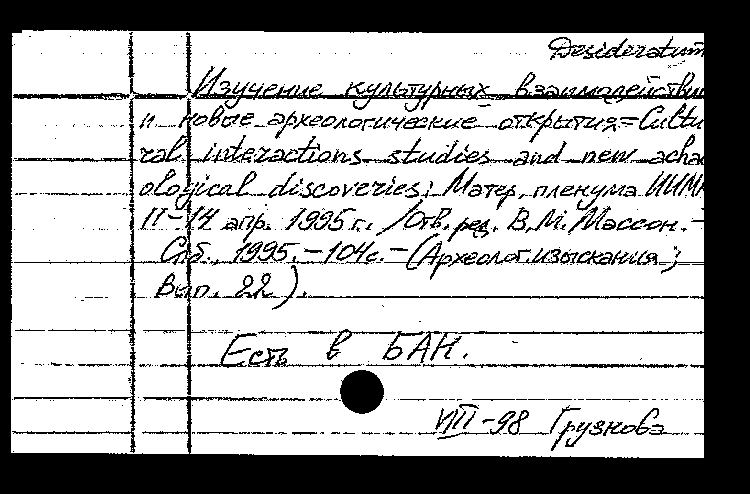 Desideratum
Изучение культурных взаимодействи
и новые археологические открытия=Cultu
ral interactions studies and new acha
ological discoveries: Матер. пленума ИИМК
11-14 апр. 1995г. /Отв. ред. В.М. Массон.-
Спб., 1995.-104с.-(Археолог.изыскания;
Вып. 22).
Есть в БАН.
VIII-98 Грузнова